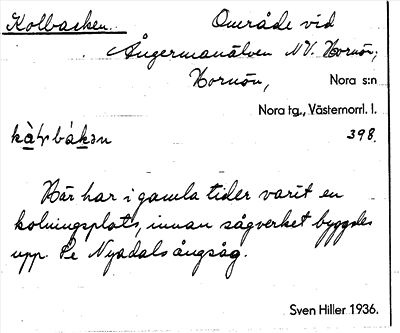 Kolbacken. Område vid
Ångermanälven N.V. Hornön,
Hornön, Nora s:n
Nora tg., Västernorrl. l.
398.
Här har i gamla tider varit en
kolningsplats, innan sågverket byggdes
upp. Se Nyadals ångsåg.
Sven Hiller 1936.